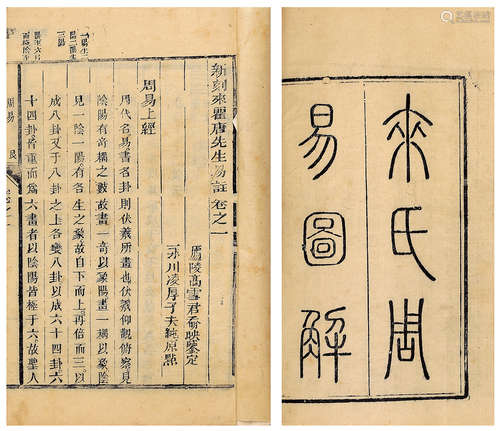 來氏周
易圖解
新刻來瞿唐先生易註卷之一
廬陵高雪君奣映鑒定
川凌厚子夫純原點
周易上經
周代名易書名卦則伏羲所畫也伏羲仰觀俯察見
陰陽有奇耦之數故畫一奇以象陽畫一耦以象陰
見一陰一陽有各生之象故自下而上再倍而三以
成八卦又于八卦之上各變八卦以成六十四卦六
十四卦皆重而為六畫者以陰陽皆極于六故聖人
周易